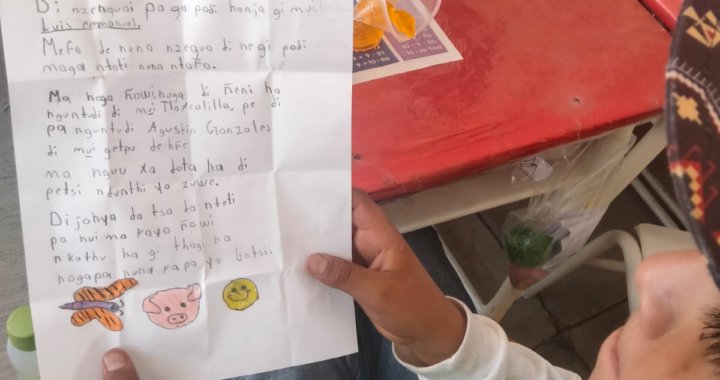 Di nzenguai pa ga padi hanja gi
Luis emmanuel.
Mefa de nuna nzegua di ne gi padi
maga ntoti nuna ntofo.
Ma hoga ñowi, nuga di ñeni ha
nguntudi di mui Tlaxcalilla, pe di
pa nguntudi Agustin Gonzales
di mui getpu de hñe
ma nguu xa dota ha di
petsi ndunthi ya zuwe.
Di johya da tsa da nteti
pa nui ma rayo ñowi
nkathu ha gi thogi na
hogapa nuna rapa ya batsi.